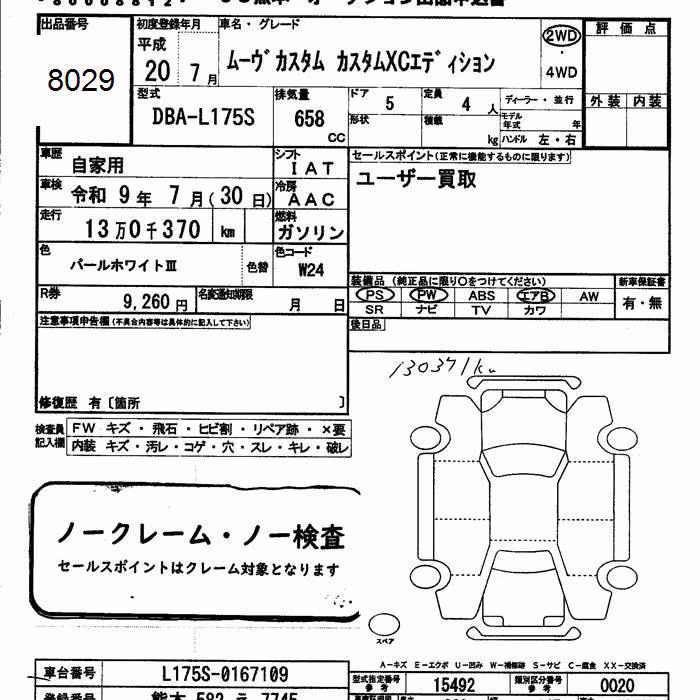 出品番号
8029
初度登録年月
平成
20 7月
車名・グレード
ムーヴカスタム カスタムXCエディション
2WD
・
4WD
評価点
外装 内装
型式
DBA-L175S
排気量
658
CC
ドア
5
定員
4人
ディーラー・並行
形状
積載
kg
モデル年式
年
ハンドル 左・右
車歴
自家用
シフト
IAT
セールスポイント(正常に機能するものに限ります)
ユーザー買取
車検
令和 9年 7月(30日)
冷房
AAC
走行
13万0千370 km
燃料
ガソリン
色
パールホワイトⅢ
色替
色コード
W24
装備品 (純正品に限り○をつけてください)
新車保証書
PS PW ABS エアB AW
SR ナビ TV カワ
有・無
R券
9,260円
名変通知期限
月 日
後日品
注意事項申告欄(不具合内容等は具体的に記入して下さい)
130371km
修復歴 有〔箇所 〕
検査員
記入欄
FW キズ・飛石・ヒビ割・リペア跡・×要
内装 キズ・汚レ・コゲ・穴・スレ・キレ・破レ
ノークレーム・ノー検査
セールスポイントはクレーム対象となります
スペア
A-キズ E-エクボ U-凹み W-補修跡 S-サビ C-腐食 XX-交換済
車台番号
L175S-0167109
型式指定番号
参考
15492
類別区分番号
参考
0020
登録番号